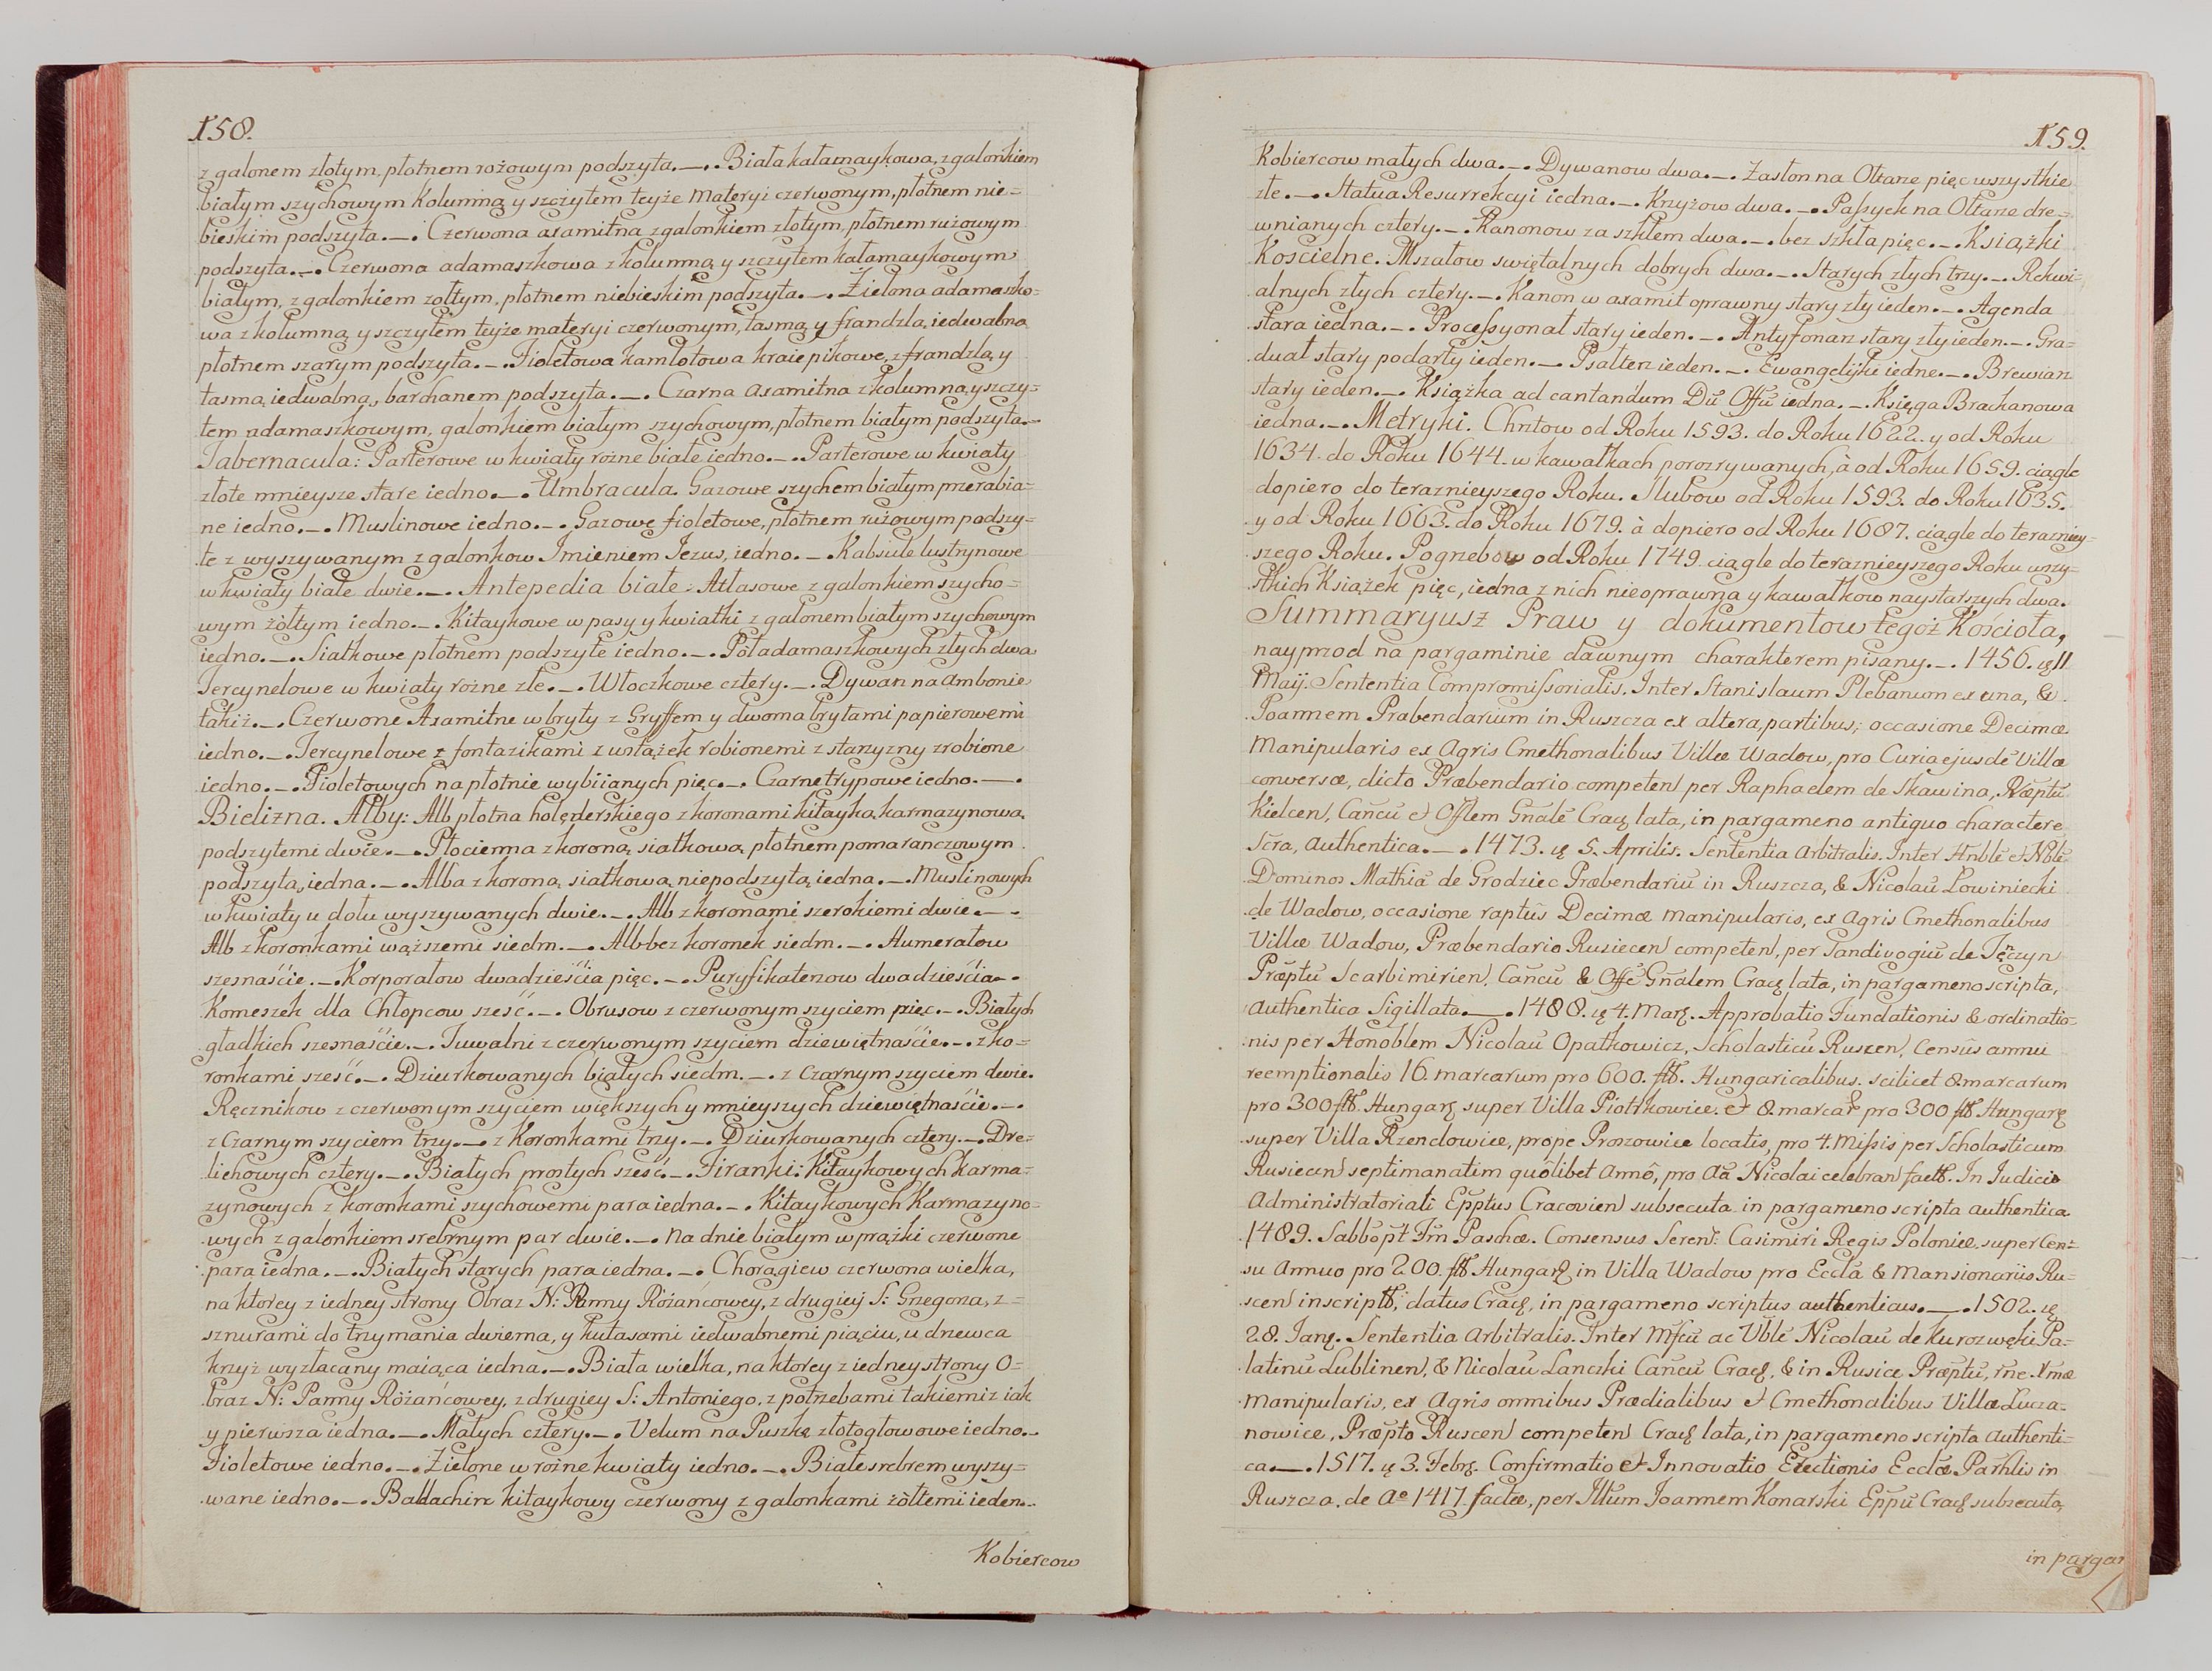 158.
z galonem złotym, płotnem rożowym podszyta._. Biała kałamaykowa, z galonkiem
białym szychowym Kolumną y szczytem teyże Materyi czerwonym, płotnem nie=
bieskim podszyta._. Czerwona axamitna z galonkiem złotym, płotnem rużowym
podszyta._. Czerwona adamaszkowa z kolumną y szczytem kałamaykowym
białym, z galonkiem żołtym, płotnem niebieskim podszyta._. Zielona adamaszko=
wa z kolumną y szczytem teyże materyi czerwonym, tasmą y frandzlą iedwabną
płotnem szarym podszyta._. Fioletowa kamlotowa kraie pikowe, z frandzlą y
tasmą iedwabną, barchanem podszyta._. Czarna axamitna z kolumną y szczy=
tem adamaszkowym, galonkiem białym szychowym, płotnem białym podszyta._
Tabernacula: Parterowe w kwiaty rożne białe iedno._. Parterowe w kwiaty
złote mnieysze stare iedno._. Umbracula. Gazowe szychem białym przerabia=
ne iedno._. Muslinowe iedno._. Gazowe fioletowe, płotnem rużowym podszy=
te z wyszywanym z galonkow Imieniem Jezus, iedno._. Kabsule lustrynowe
w kwiaty białe dwie._. Antepedia białe: Atłasowe z galonkiem szycho=
wym żołtym iedno._. Kitaykowe w pasy y kwiatki z galonem białym szychowym
iedno._. Siatkowe płotnem podszyte iedno._. Poładamaszkowych złych dwa
Tercynelowe w kwiaty rożne złe._. Włoczkowe cztery._. Dywan na Ambonie
takiż._. Czerwone Axamitne w bryty z Gryffem y dwoma brytami papierowemi
iedno._. Tercynelowe z fontazikami z wstążek robionemi z starzyzny zrobione
iedno._. Fioletowych na płotnie wybiianych pięc._. Czarne trypowe iedno._.
Bielizna. Alby: Alb płotna holęderskiego z koronami kitayką karmazynową
podszytemi dwie._. Płocienna z koroną siatkową płotnem pomaranczowym
podszyta, iedna._. Alba z koroną siatkową niepodszytą iedna._. Muslinowych
w kwiaty u dołu wyszywanych dwie._. Alb z koronami szerokiemi dwie._.
Alb z koronkami wąższemi siedm._. Alb bez koronek siedm._. Humerałow
szesnaście._. Korporałow dwadzieścia pięc._. Puryfikaterzow dwadzieścia._.
Komeszek dla Chłopcow sześć._. Obrusow z czerwonym szyciem pięc._. Białych
gładkich szesnaście._. Tuwalni z czerwonym szyciem dziewiętnaście._. z ko=
ronkami sześć._. Dziurkowanych białych siedm._. z Czarnym szyciem dwie.
Ręcznikow z czerwonym szyciem większych y mnieyszych dziewiętnaście._.
z Czarnym szyciem trzy._. z Koronkami trzy._. Dziurkowanych cztery._. Dre=
lichowych cztery._. Białych prostych sześć._. Firanki: Kitaykowych karma=
zynowych z koronkami szychowemi para iedna._. Kitaykowych Karmazyno=
wych z galonkiem srebrnym par dwie._. na dnie białym w prążki czerwone
para iedna._. Białych starych para iedna._. Chorągiew czerwona wielka,
na ktorey z iedney strony Obraz N: Panny Różańcowey, z drugiey S: Grzegorza, z=
sznurami do trzymania dwiema, y kutasami iedwabnemi piąciu, u drzewca
krzyż wyzłacany maiąca iedna._. Biała wielka, na ktorey z iedney strony O=
braz N: Panny Różańcowey, z drugiey S: Antoniego, z potrzebami takiemiż iak
y pierwsza iedna._. Małych cztery._. Velum na Puszkę złotogłowowe iedno._.
Fioletowe iedno._. Zielone w rożne kwiaty iedno._. Białe srebrem wyszy=
wane iedno._. Baldachin kitaykowy czerwony z galonkami żòłtemi ieden._.
Kobiercow
159.
Kobiercow małych dwa._. Dywanow dwa._. Zasłon na Ołtarze pięc wszystkie
złe._. Statua Resurrekcyi iedna._. Krzyżow dwa._. Passyek na Ołtarze dre=
wnianych cztery._. Kanonow za szkłem dwa._. bez szkła pięc._. Książki
Koscielne. Mszałow swiętalnych dobrych dwa._. Starych złych trzy._. Rekwi=
alnych złych cztery._. Kanon w axamit oprawny stary zły ieden._. Agenda
stara iedna._. Processyonał stary ieden._. Antyfonarz stary zły ieden._. Gra=
duał stary podarty ieden._. Psałterz ieden._. Ewangelijki iedne._. Brewiarz
stary ieden._. Książka ad cantandum Dũ Offũ iedna._. Księga Brackanowa
iedna._. Metryki. Chrztow od Roku 1593. do Roku 1622. y od Roku
1634. do Roku 1644. w kawałkach porozrywanych, à od Roku 1659. ciągle
dopiero do teraznieyszego Roku. Slubow od Roku 1593. do Roku 1635.
y od Roku 1663. do Roku 1679. à dopiero od Roku 1687. ciągle do teraźniey=
szego Roku. Pogrzebow od Roku 1749. ciągle do teraznieyszego Roku wszy=
stkich Książek pięc, iedna z nich nieoprawna y kawałkow naystarszych dwa.
Summaryusz Praw y dokumentow tegoż Kościoła,
nayprzod na pargaminie dawnym charakterem pisany._. 1456. 11
Maij. Sententia Compromissorialis. Inter Stanislaum Plebanum ex una, &
Joannem Præbendarium in Ruszcza ex altera, partibus; occasione Decimæ
Manipularis ex Agris Cmethonalibus Villæ Wadow, pro Curia ejusdẽ Villæ
conversæ, dicto Præbendario competen) per Raphaelem de Skawina, Præptũ
Kielcen), Cañcũ et Offlem Gñalẽ Crac) lata, in pargameno antiquo charactere
Scra, authentica._. 1473. 5. Aprilis. Sententia Arbitralis. Inter Hñblẽ et Nblẽ
Dominos Mathiã de Grodziec Præbendariũ in Ruszcza, & Nicolaũ Lowiniecki
de Wadow, occasione raptus Decimæ Manipularis, ex Agris Cmethonalibus
Villæ Wadow, Præbendario Rusiecen) competen), per Sandivogiũ de Tęczyn
Præptũ Scarbimirien), Cañcũ & Offc Gñalem Crac) lata, in pargameno scripta,
authentica Sigillata._. 1488. 4. Marc). Approbatio Fundationis & ordinatio=
nis per Honoblem Nicolaũ Opatkowicz, Scholasticũ Ruscen), Censũs annui
reemptionalis 16. marcarum pro 600. fflß. Hungaricalibus. scilicet 8. marcarum
pro 300 fflß. Hungar) super Villa Piotrkowice. et 8. marcar) pro 300 fflß Hungar)
super Villa Rzendowice, prope Proszowice locatis, pro 4. Missis per Scholasticum
Rusiecen) septimanatim quôlibet Annô, pro aã Nicolai celebran) fact. In Judicio
Administratoriali Epptus Cracovien) subsecuta in pargameno scripta authentica
1489. Sabbo pt Fm Paschæ. Consensus Seren: Casimiri Regis Poloniæ, super Cen=
su Annuo pro 200. fflß Hungar) in Villa Wadow pro Eccla & Mansionariis Ru=
scen) inscript, datus Crac), in pargameno scriptus authenticus._. 1502.
28. Jan). Sententia Arbitralis. Inter Mfcũ ac Vblẽ Nicolaũ de Kurozwęki Pa=
latinũ Lublinen), & Nicolaũ Lanczki Cañcũ Crac), & in Rusice Præptũ, rñe Xmæ
manipularis, ex Agris omnibus Prædialibus et Cmethonalibus Villæ Lucza=
nowice, Præpto Ruscen) competen) Crac) lata, in pargameno scripta authenti=
ca._. 1517. 3. Febr). Confirmatio et Innovatio Erectionis Ecclæ Parhlis in
Ruszcza, de Aº 1417. factæ, per Illum Joannem Konarski Eppũ Crac) subsecuta,
in pargar